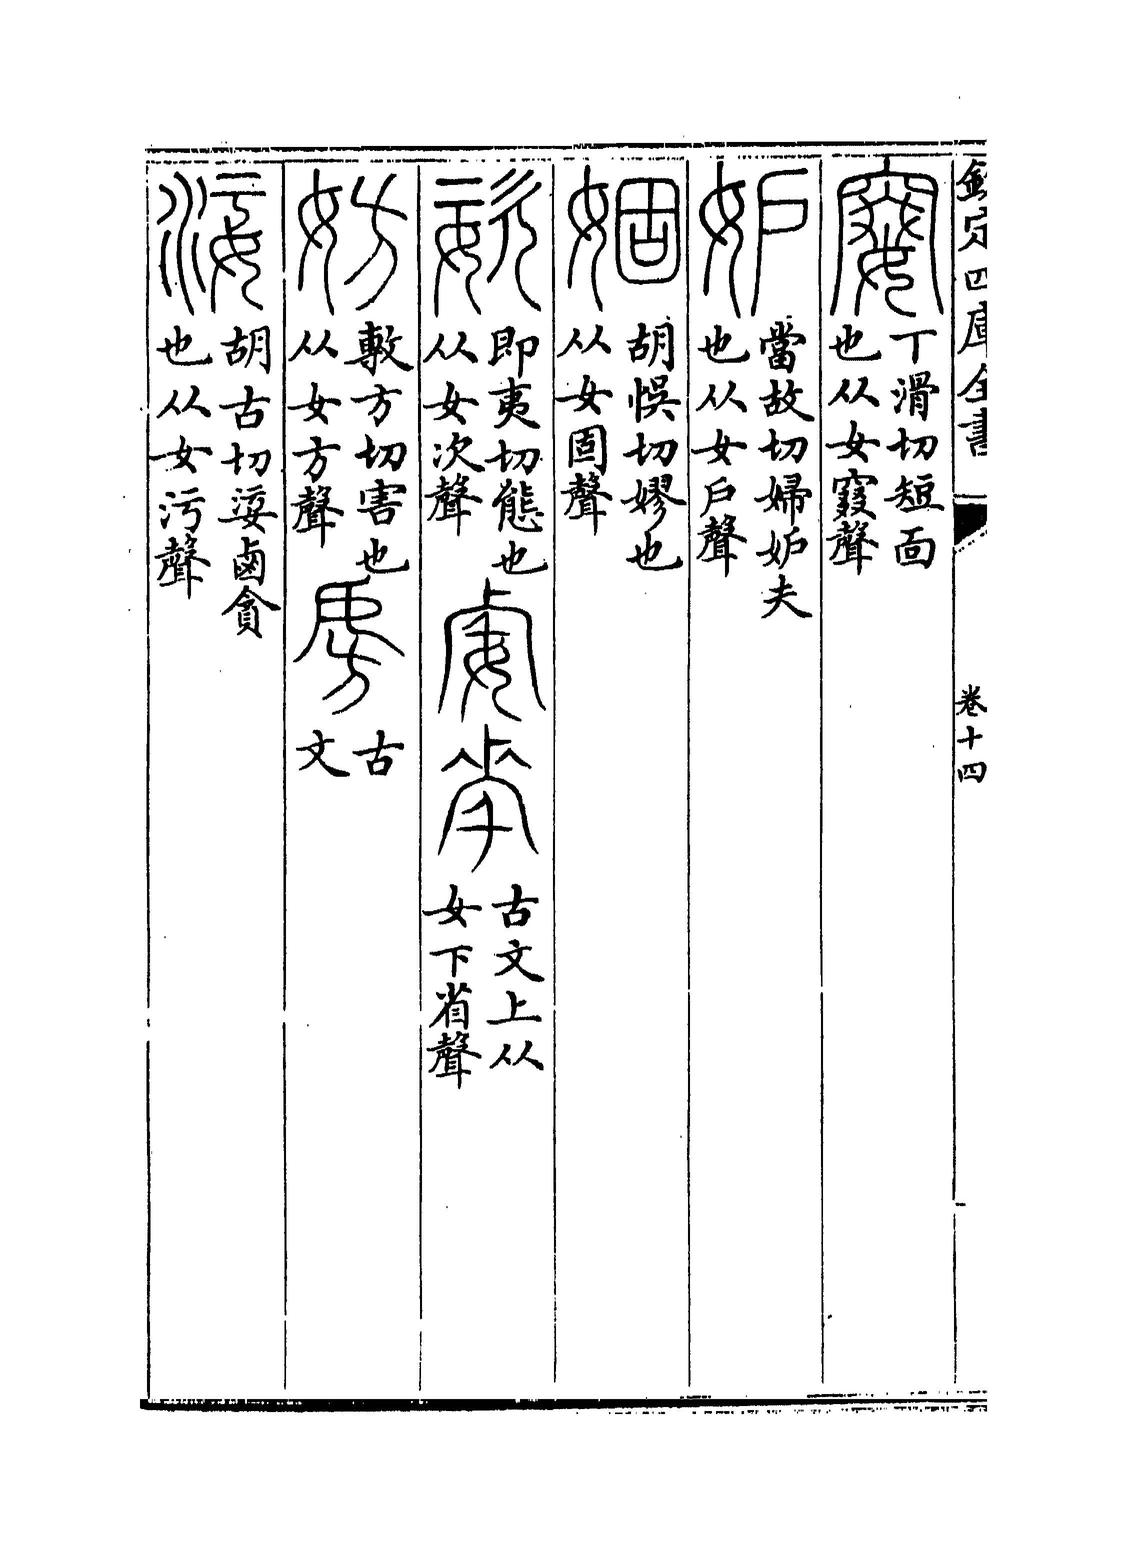 欽定四庫全書
卷十四
丁滑切短面
也从女窡聲
妒
當故切婦妒夫
也从女戶聲
婟
胡悞切嫪也
从女固聲
姿
即夷切態也
从女次聲
古文上从
女下省聲
妨
敷方切害也
从女方聲
古
文
胡古切鹵貪
也从女污聲